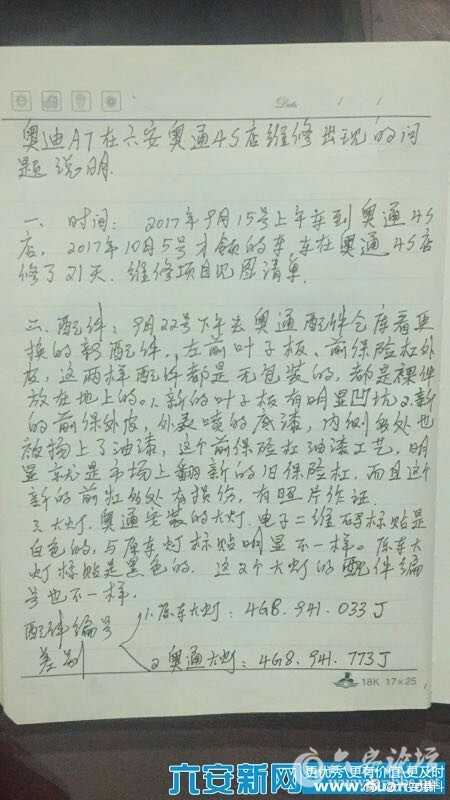 Date / /
奥迪A7在六安奥通4S店维修出现的问
题说明.
一、时间: 2017年9月15号上午车到奥通4S
店, 2017年10月5号才领的车,车在奥通4S店
修了21天.维修项目见图清单.
二、配件: 9月22号下午去奥通配件仓库看更
换的新配件,左前叶子板、前保险杠外
皮,这两样配件都是无包装的,都是裸件
放在地上的。1.新的叶子板有明显凹坑2.新
的前保外皮,外表喷的底漆,内侧多处也
被扬上了油漆,这个前保险杠油漆工艺,明
显就是市场上翻新的旧保险杠.而且这个
新的前杠多处有损伤,有照片作证.
3.大灯.奥通安装的大灯.电子二维码标贴是
白色的,与原车灯标贴明显不一样。原车大
灯标贴是黑色的. 这2个大灯的配件编
号也不一样.
配件编号
差别
1.原车大灯: 4G8.941.033J
2.奥通大灯: 4G8.941.773J
18K 17×25
六安新网
六安论坛
更优秀\更有价值\更及时